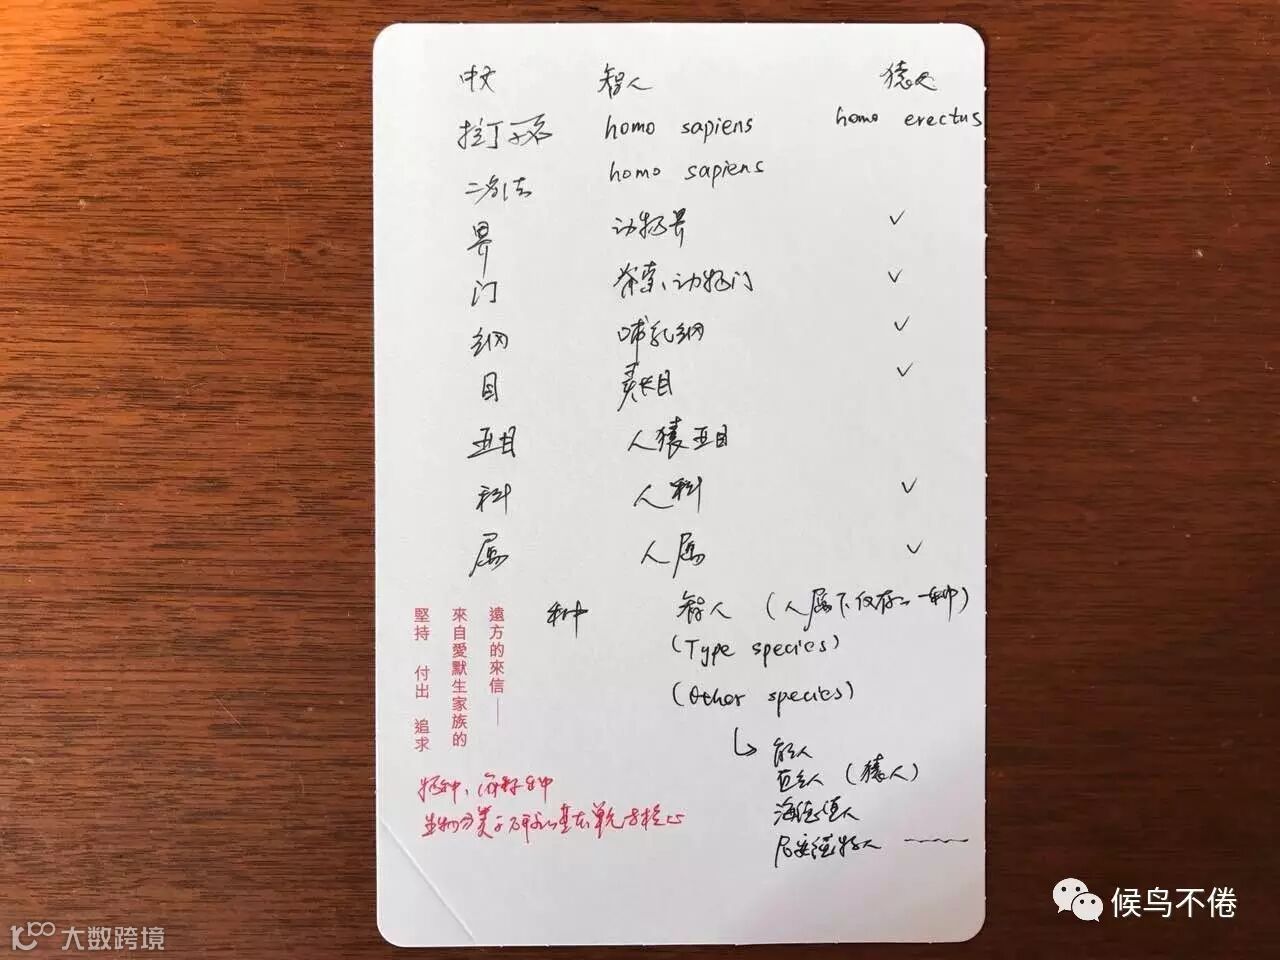 中文 智人 猿人
拉丁学名 homo sapiens homo erectus
二名法 homo sapiens
界 动物界 ✓
门 脊索动物门 ✓
纲 哺乳纲 ✓
目 灵长目 ✓
亚目 人猿亚目
科 人科 ✓
属 人属 ✓
种 智人 (人属下仅存一种)
(Type species)
(Other species)
能人
直立人 (猿人)
海德堡人
尼安德特人
遠方的來信——
來自愛默生家族的
堅持 付出 追求
物种,简称种
生物分类学研究的基本单元与核心
候鸟不倦
大数跨境